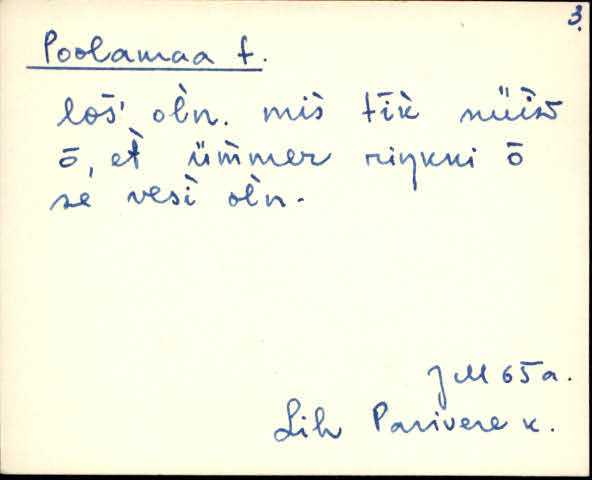 3.
Poolamaa t.
loš' olǹ. mis̀ tīk̀ nüìd
ō, et̀ üm̀mer riŋkni ō
se vesì olǹ.
JM 65a.
Lih Parivere k.